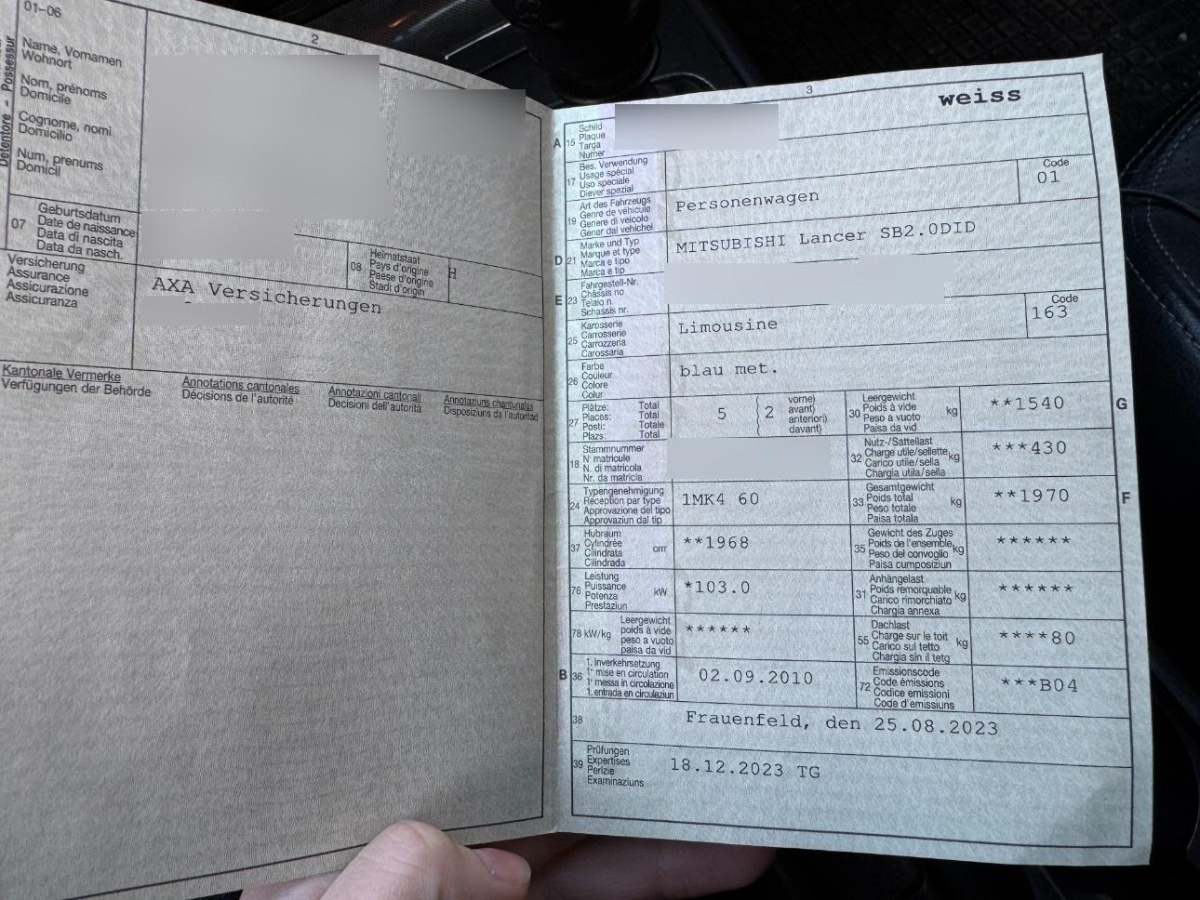 01-06
2
Detentore - Possessur
Name, Vornamen
Wohnort
Nom, prénoms
Domicile
Cognome, nomi
Domicilio
Num, prenums
Domicil
07
Geburtsdatum
Date de naissance
Data di nascita
Data da nasch.
08
Heimatstaat
Pays d'origine
Paese d'origine
Stadi d'origin
Versicherung
Assurance
Assicurazione
Assicuranza
AXA Versicherungen
Kantonale Vermerke
Verfügungen der Behörde
Annotations cantonales
Décisions de l'autorité
Annotazioni cantonali
Decisioni dell'autorità
Annotaziuns chantunalas
Disposiziuns da l'autoritad
3
weiss
A 15
Schild
Plaque
Targa
Numer
17
Bes. Verwendung
Usage spécial
Uso speciale
Diever spezial
19
Art des Fahrzeugs
Genre de véhicule
Genere di veicolo
Gener dal vehichel
Personenwagen
Code
01
D 21
Marke und Typ
Marque et type
Marca e tipo
Marca e tip
MITSUBISHI Lancer SB2.0DID
E 23
Fahrgestell-Nr.
Châssis no
Telaio n.
Schassis nr.
25
Karosserie
Carrosserie
Carrozzeria
Carossaria
Limousine
Code
163
26
Farbe
Couleur
Colore
Colur
blau met.
27
Plätze: Total
Places: Total
Posti: Totale
Plazs: Total
5
2
vorne)
avant)
anteriori)
davant)
30
Leergewicht
Poids à vide
Peso a vuoto
Paisa da vid
kg
**1540
G
18
Stammnummer
N° matricule
N. di matricola
Nr. da matricla
32
Nutz-/Sattellast
Charge utile/sellette
Carico utile/sella
Chargia utila/sella
kg
***430
24
Typengenehmigung
Réception par type
Approvazione del tipo
Approvaziun dal tip
1MK4 60
33
Gesamtgewicht
Poids total
Peso totale
Paisa totala
kg
**1970
F
37
Hubraum
Cylindrée
Cilindrata
Cilindrada
cm³
**1968
35
Gewicht des Zuges
Poids de l'ensemble
Peso del convoglio
Paisa cumposiziun
kg
******
76
Leistung
Puissance
Potenza
Prestaziun
kW
*103.0
31
Anhängelast
Poids remorquable
Carico rimorchiato
Chargia annexa
kg
******
78 kW/kg
Leergewicht
poids à vide
peso a vuoto
paisa da vid
******
55
Dachlast
Charge sur le toit
Carico sul tetto
Chargia sin il tetg
kg
****80
B 36
1. Inverkehrsetzung
1re mise en circulation
1a messa in circolazione
1. entrada en circulaziun
02.09.2010
72
Emissionscode
Code émissions
Codice emissioni
Code d'emissiuns
***B04
38
Frauenfeld, den 25.08.2023
39
Prüfungen
Expertises
Perizie
Examinaziuns
18.12.2023 TG